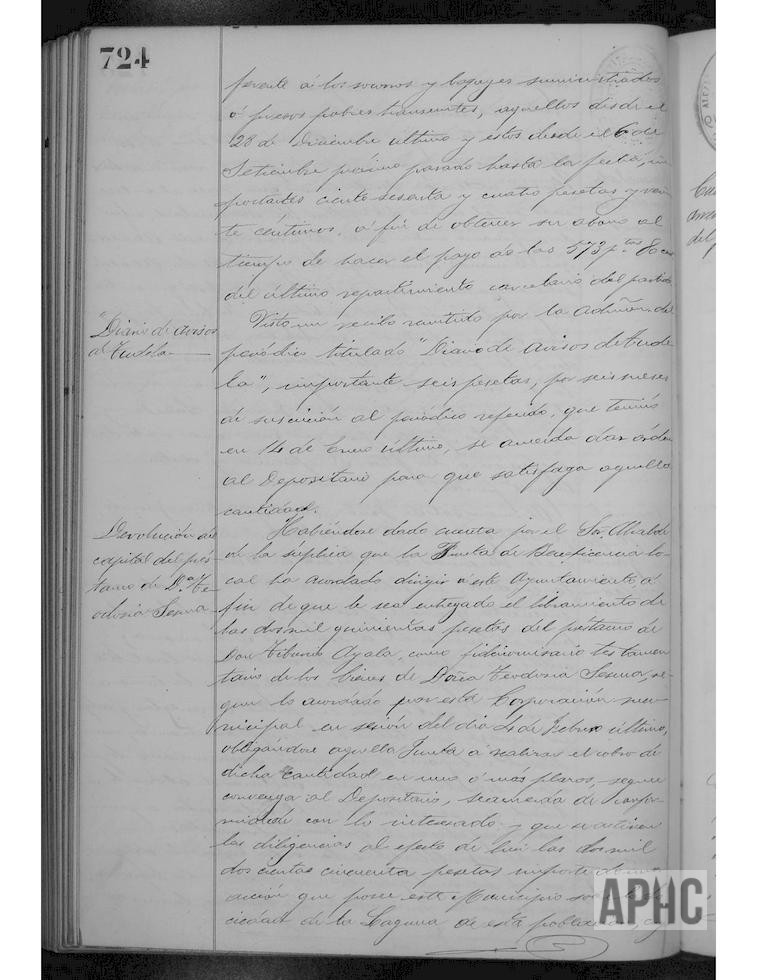 724
ferente á los socorros y bagages suministrados
á presos pobres transeuntes, aquellos desde el
28 de Diciembre último y estos desde el 6 de
Setiembre próximo pasado hasta la fecha, im
portantes ciento sesenta y cuatro pesetas y vein
te céntimos, á fin de obtener su abono al
tiempo de hacer el pago de las 573 ptas 80 cs
del último repartimiento carcelario del partido
"Diario de avisos
de Tudela
Visto un recibo remitido por la admón. del
periódico titulado "Diario de avisos de Tude
la", importante seis pesetas, por seis meses
de suscrición al periódico referido, que terminó
en 14 de Enero último, se acuerda dar órden
al Depositario para que satisfaga aquella
cantidad.
Devolución del
capital del prés
tamo de D.ª Te
odosia Sesma
Habiéndose dado cuenta por el Sor. Alcalde
de la súplica que la Junta de Beneficencia lo-
cal ha acordado dirigir á este Ayuntamiento, á
fin de que le sea entregado el libramiento de
las dos mil quinientas pesetas del préstamo de
Don Tiburcio Ayala, como fideicomisario testamen
tario de los bienes de Doña Teodosia Sesma, se-
gun lo acordado por esta Corporación mu-
nicipal en sesión del dia 4 de Febrero último,
obligándose aquella Junta á realizar el cobro de
dicha cantidad en uno ó más plazos, segun
convenga al Depositario, se acuerda de confor-
midad con lo interesado y que se activen
las diligencias al efecto de las dos mil
doscientas cincuenta pesetas importe de una
acción que posee este Municipio
ciedad de la Laguna de esta población,
APHC